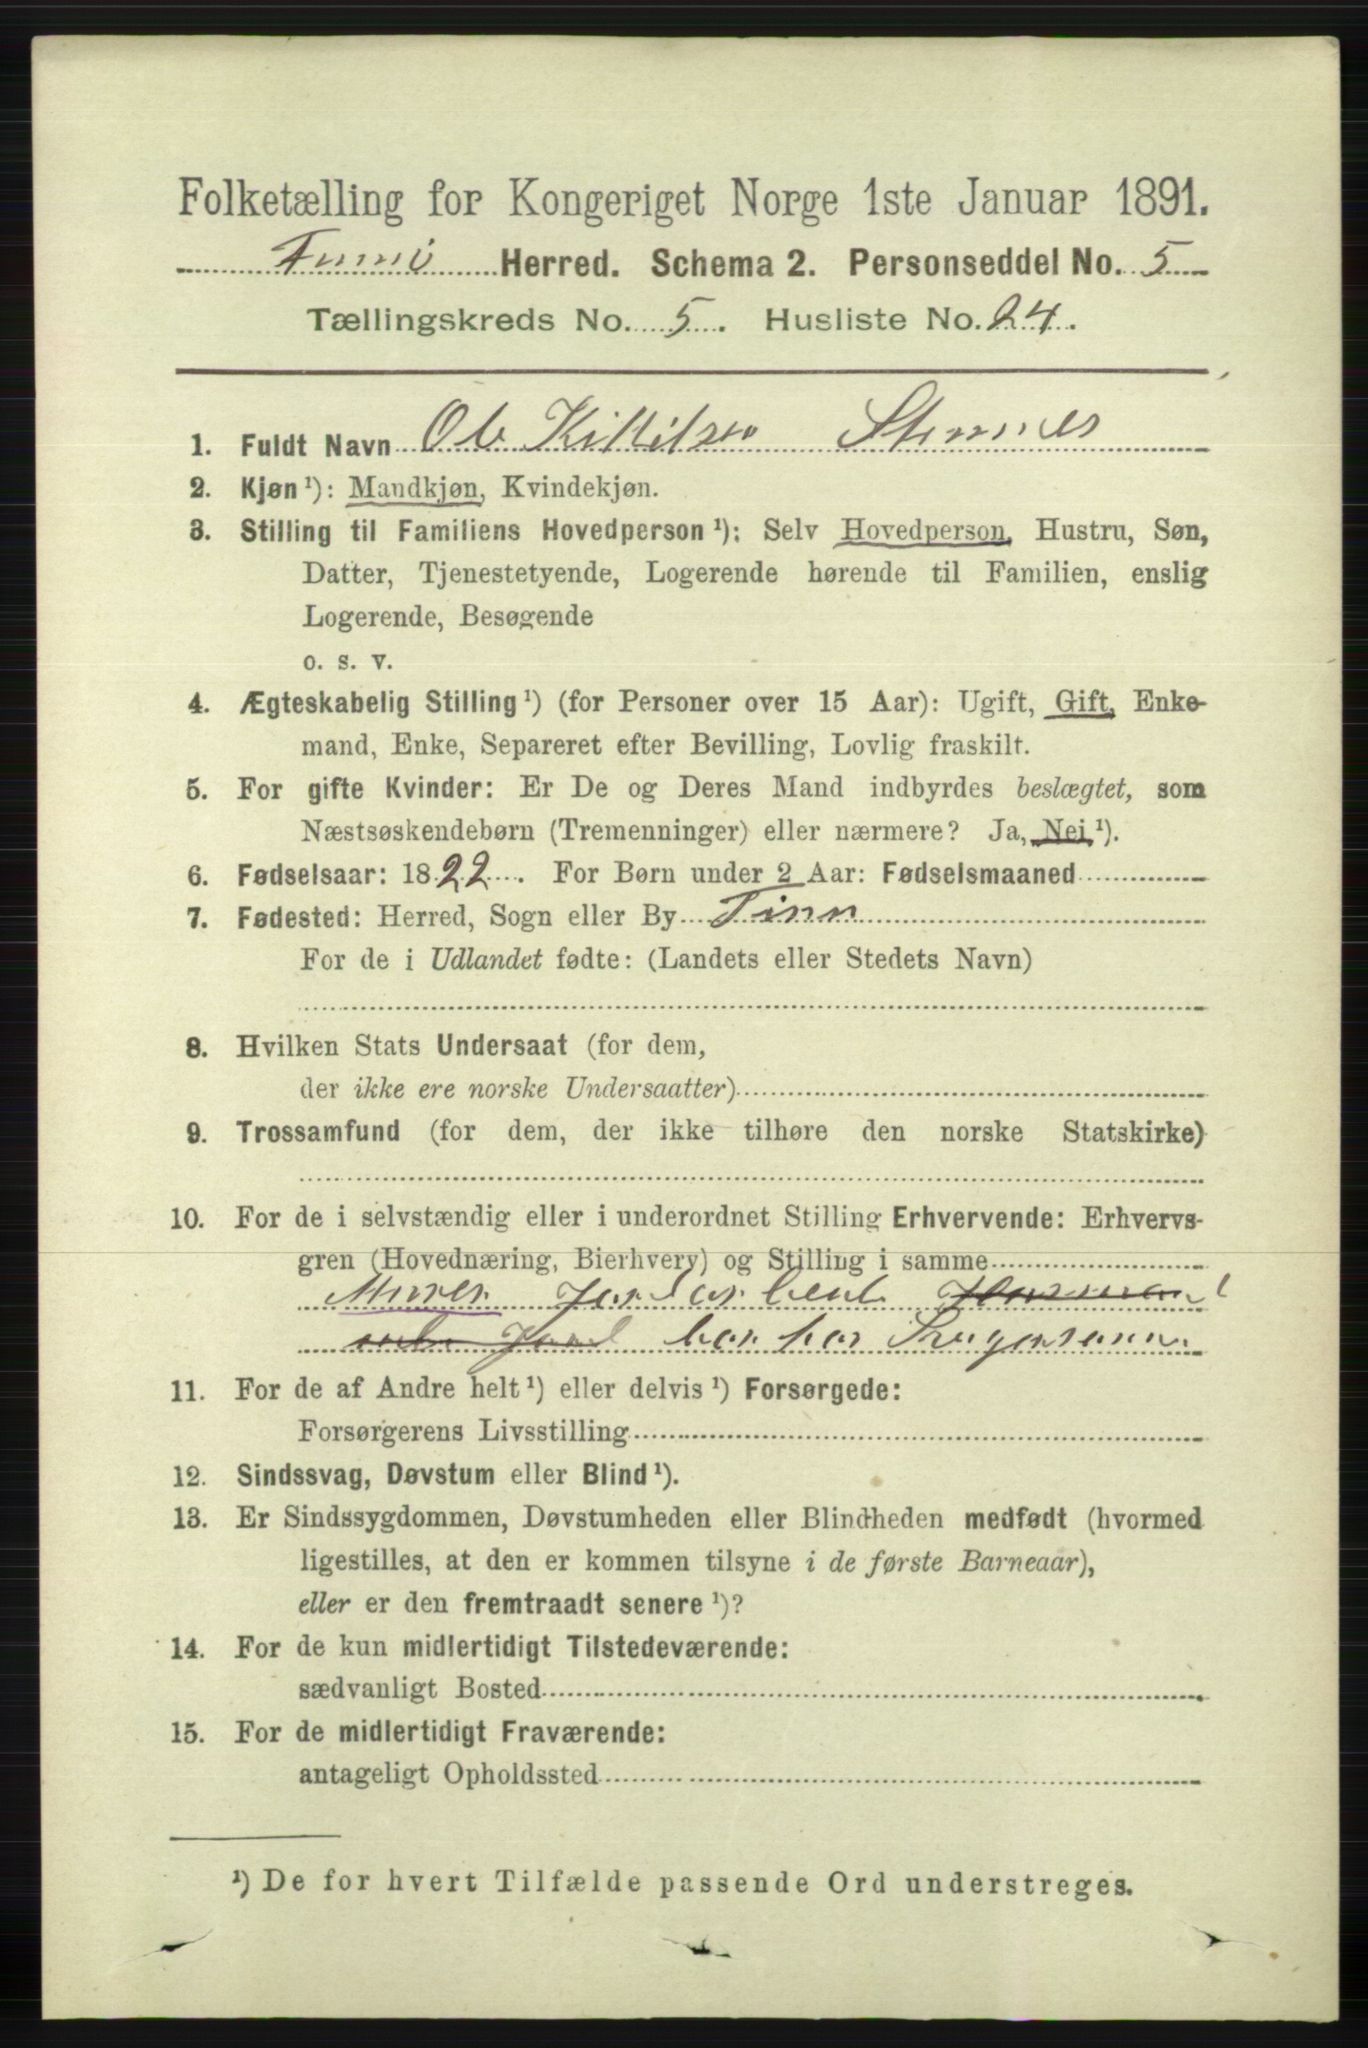 Folketælling for Kongeriget Norge 1ste Januar 1891.
Herred. Schema 2. Personseddel No. 5
Tællingskreds No. 5. Husliste No. 24.
1. Fuldt Navn Ole Kittilsen
2. Kjøn ¹): Mandkjøn, Kvindekjøn.
3. Stilling til Familiens Hovedperson ¹): Selv Hovedperson, Hustru, Søn,
Datter, Tjenestetyende, Logerende hørende til Familien, enslig
Logerende, Besøgende
o. s. v.
4. Ægteskabelig Stilling ¹) (for Personer over 15 Aar): Ugift, Gift, Enke-
mand, Enke, Separeret efter Bevilling, Lovlig fraskilt.
5. For gifte Kvinder: Er De og Deres Mand indbyrdes beslægtet, som
Næstsøskendebørn (Tremenninger) eller nærmere? Ja, Nei ¹).
6. Fødselsaar: 1822. For Børn under 2 Aar: Fødselsmaaned
7. Fødested: Herred, Sogn eller By Tinn
For de i Udlandet fødte: (Landets eller Stedets Navn)
8. Hvilken Stats Undersaat (for dem,
der ikke ere norske Undersaatter)
9. Trossamfund (for dem, der ikke tilhøre den norske Statskirke)
10. For de i selvstændig eller i underordnet Stilling Erhvervende: Erhvervs-
gren (Hovednæring, Bierhverv) og Stilling i samme
Murer
11. For de af Andre helt ¹) eller delvis ¹) Forsørgede:
Forsørgerens Livsstilling
12. Sindssvag, Døvstum eller Blind ¹).
13. Er Sindssygdommen, Døvstumheden eller Blindheden medfødt (hvormed
ligestilles, at den er kommen tilsyne i de første Barneaar),
eller er den fremtraadt senere ¹)?
14. For de kun midlertidigt Tilstedeværende:
sædvanligt Bosted
15. For de midlertidigt Fraværende:
antageligt Opholdssted
¹) De for hvert Tilfælde passende Ord understreges.